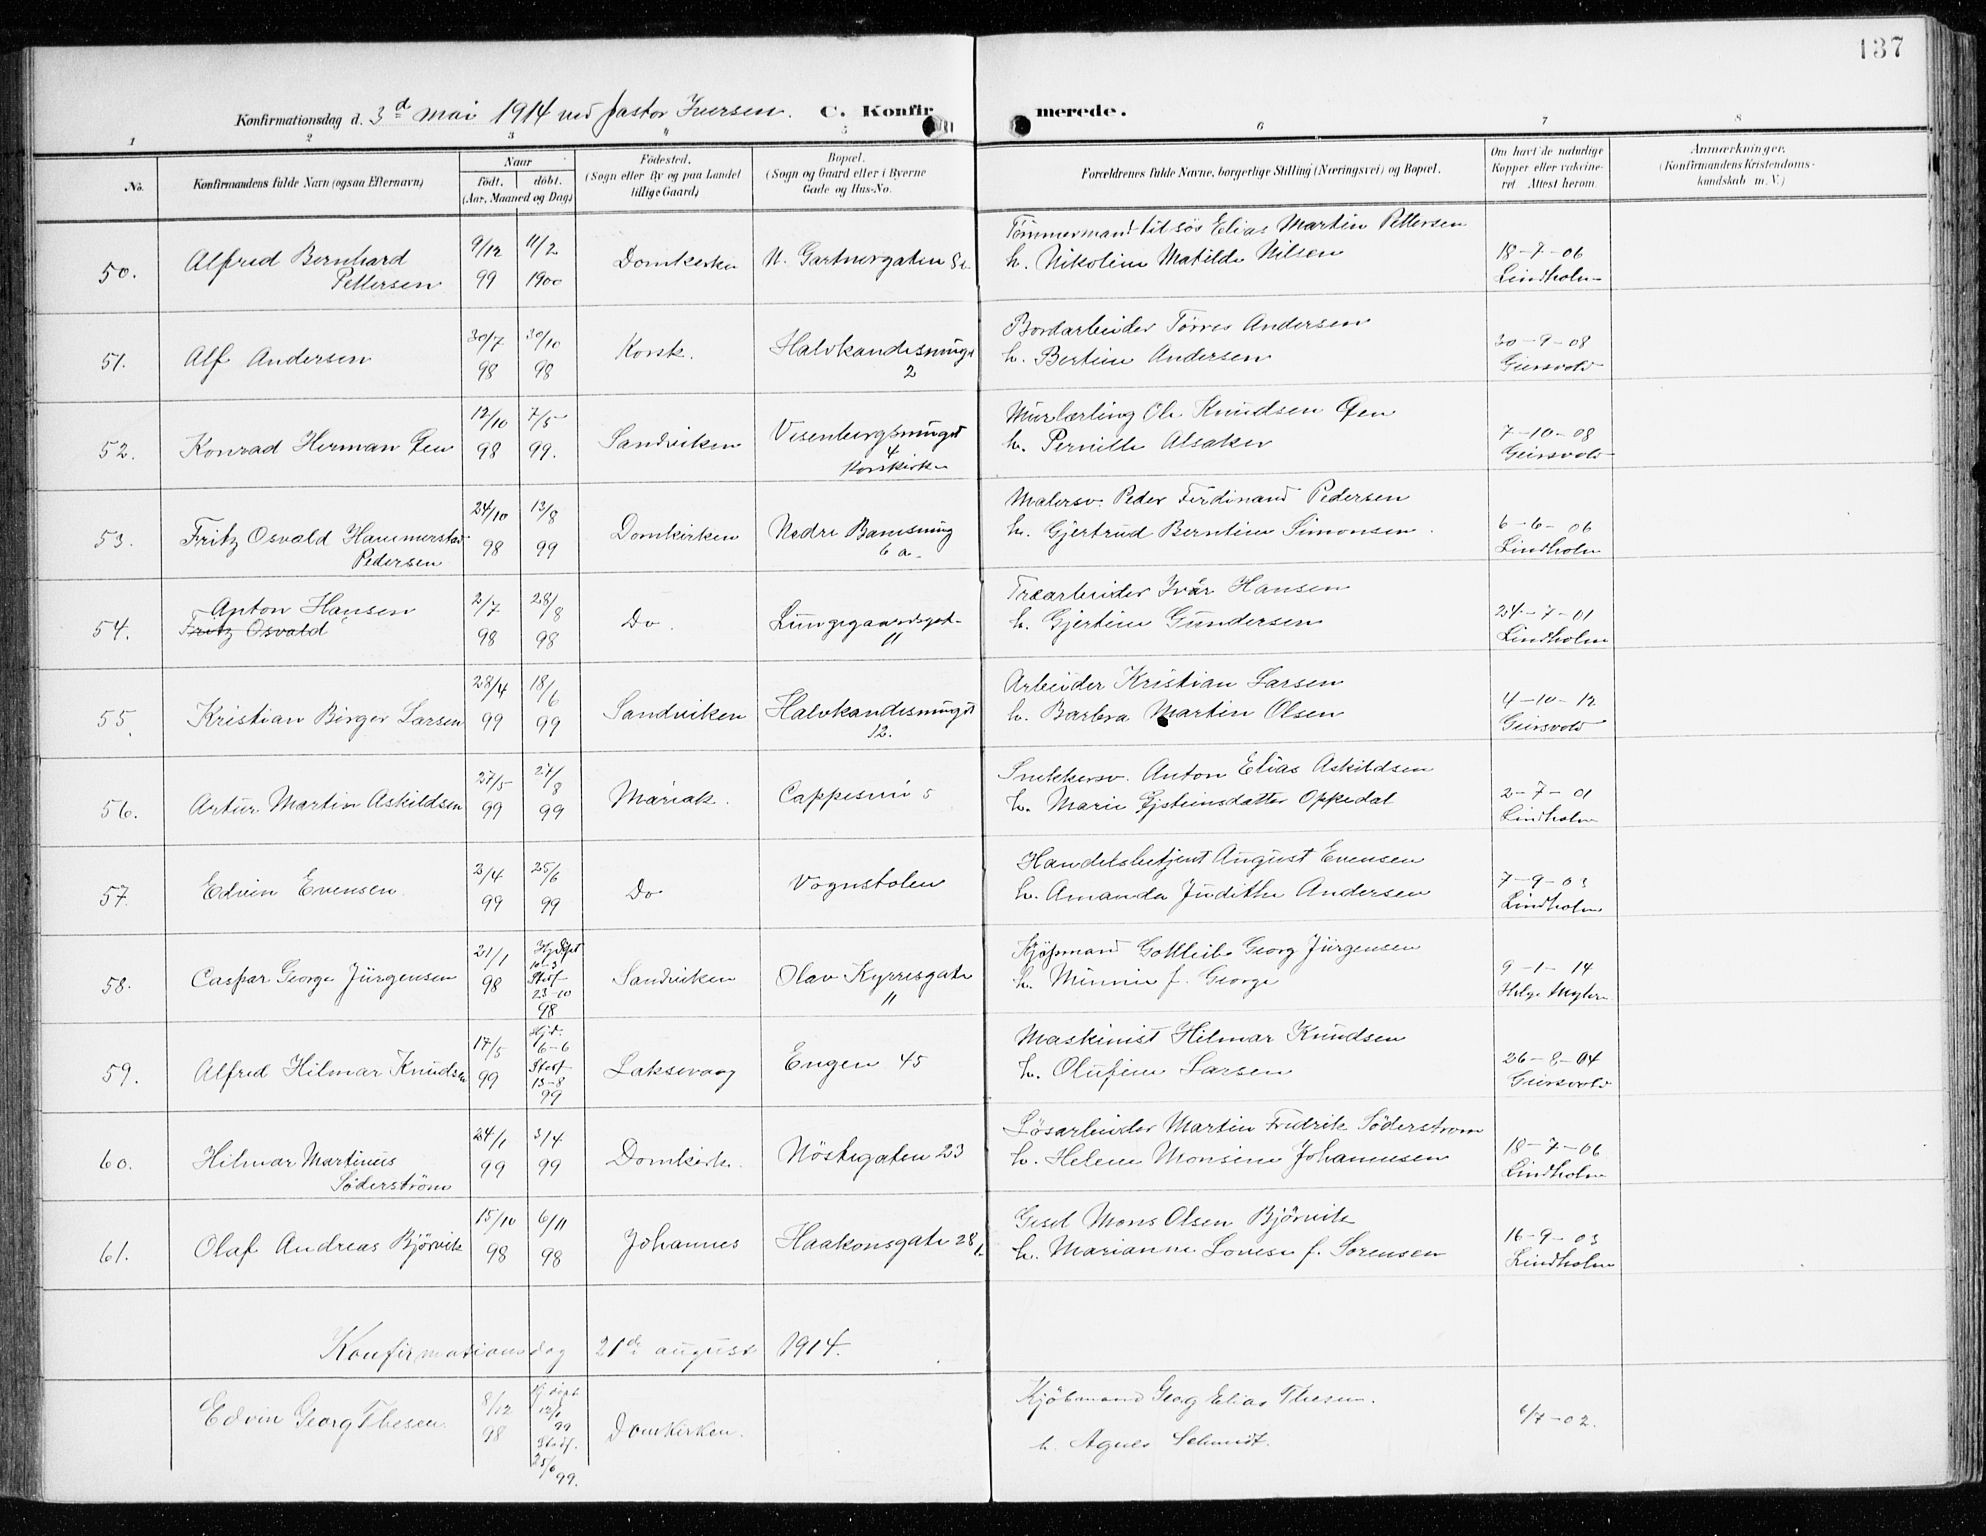 137
Konfirmationsdag d. 3d mai 1914 ved pastor Iversen. C. Konfir merede.
1 2 3 4 5 6 7 8
No. Konfirmandens fulde Navn (ogsaa Efternavn)
Naar
födt. döbt.
(Aar, Maaned og Dag)
Födested.
(Sogn eller By og paa Landet
tillige Gaard)
Bopæl.
(Sogn og Gaard eller i Byerne
Gade og Hus-No.
Forældrenes fulde Navne, borgerlige Stilling (Næringsvei) og Bopæl.
Om havt de naturlige
Kopper eller vakcine-
ret Attest herom.
Anmærkninger.
(Konfirmandens Kristendoms-
kundskab m. V.)
50. Alfred Bernhard
Pettersen
9/12 99 11/2 1900
Domkirken
N. Gartnergaten
Tömmermand tilsös Elias Martin Pettersen
h. Nikoline Matilde Nilsen
18-7-06
Lindholm
51. Alf Andersen
30/7 98 30/10 98
Korsk.
Halvkandesmuget
2
Bordarbeider Tørres Andersen
h. Bertine Andersen
30-9-08
Geirsvold
52. Konrad Herman Øen
12/10 98 7/5 99.
Sandviken
Visenbergsmuget
4
Korskirken
Murlærling Ole Knudsen Øen
h. Pernille Alsaker
7-10-08
Geirsvold
53. Fritz Osvald Hammerstad
Pedersen
24/10 98 13/8 99
Domkirken
Nedre Bamsemug
6a.
Malersv. Peder Ferdinand Pedersen
h. Gjertrud Berntine Simonsen.
6-6-06
Lindholm
54. Anton Hansen
Fritz Osvald
2/7 98 28/8 98
Do.
Lungegaardsgat
11
Træarbeider Ivar Hansen
h. Gjertine Gundersen
24-7-01
Lindholm
55. Kristian Birger Larsen
28/4 99 18/6 99
Sandviken
Halvkandesmuget
12.
Arbeider Kristian Larsen
h. Barbra Martin Olsen
4-10-12
Geirsvold
56. Artur Martin Askildsen
27/5 99 27/8 99
Mariak.
Cappesmu 5
Snekkersv. Anton Elias Askildsen
h. Marie Ejsteinsdatter Oppedal
2-7-01
Lindholm
57. Edvin Evensen
3/4 99 25/6 99
Do
Vognstolen
Handelsbetjent August Evensen
h. Amanda Judithe Andersen
7-9-03
Lindholm
58. Caspar George Jürgensen
21/1 98 Hjdöpt
10-3
Stadf
23-10
98
Sandviken
Olav Kyrresgate
11
Kjøpmand Gottleib Georg Jürgensen
h. Minnie f. George
9-1-14
59. Alfred Hilmar Knudsen
17/5 99 Hjd.
16-6
Stadf
13-8
99
Laksevaag
Engen 45
Maskinist Hilmar Knudsen
h. Olufine Larsen
26-8-04
Geirsvold
60. Hilmar Martinus
Söderström
24/1 99 3/4 99
Domkirk.
Nöstegaten 23
Løsarbeider Martin Fredrik Söderstrom
h. Helene Monsine Johannesen
18-7-06
Lindholm
61. Olaf Andreas Bjørvik
15/10 98 6/11 98
Johannes
Haakonsgate 28
Gesel Mons Olsen Bjørvik
h. Marianne Lovise f. Sorensen
16-9-03
Lindholm
Konfirmationsdag 21de august 1914.
Edvin Georg Thesen
8/12 98 Hj döpt
12/1
99
Stadf.
25/6 99.
Domkirken.
Kjöbmand Georg Elias Thesen.
h. Agnes Schmidt.
6/7-02.